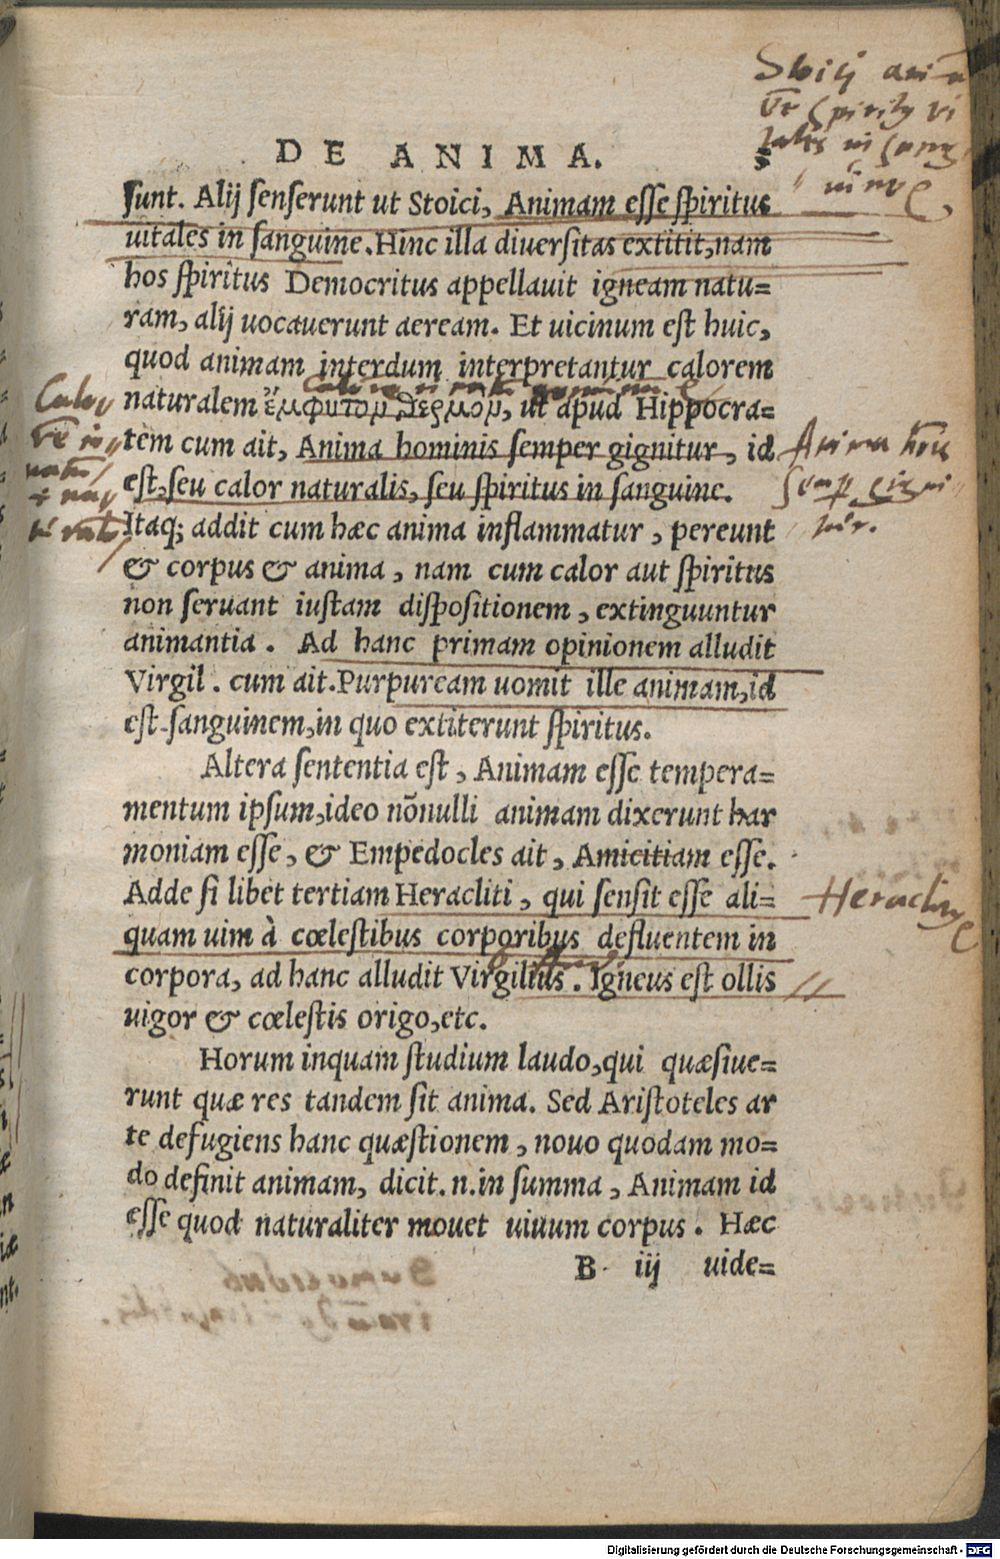 DE ANIMA.
5
sunt. Alij senserunt ut Stoici, Animam esse spiritus
uitales in sanguine. Hinc illa diuersitas extitit, nam
hos spiritus Democritus appellauit igneam natu=
ram, alij uocauerunt aeream. Et uicinum est huic,
quod animam interdum interpretantur calorem
naturalem ἔμφυτον θερμὸν, ut apud Hippocra=
tem cum ait, Anima hominis semper gignitur, id
est, seu calor naturalis, seu spiritus in sanguine.
Itaq; addit cum hæc anima inflammatur, pereunt
& corpus & anima, nam cum calor aut spiritus
non seruant iustam dispositionem, extinguuntur
animantia. Ad hanc primam opinionem alludit
Virgil. cum ait. Purpuream uomit ille animam, id
est sanguinem, in quo extiterunt spiritus.
Altera sententia est, Animam esse tempera=
mentum ipsum, ideo nōnulli animam dixerunt har
moniam esse, & Empedocles ait, Amicitiam esse.
Adde si libet tertiam Heracliti, qui sensit esse ali=
quam uim à cœlestibus corporibus defluentem in
corpora, ad hanc alludit Virgilius. Igneus est ollis
uigor & cœlestis origo, etc.
Horum inquam studium laudo, qui quæsiue=
runt quæ res tandem sit anima. Sed Aristoteles ar
te defugiens hanc quæstionem, nouo quodam mo=
do definit animam, dicit. n. in summa, Animam id
esse quod naturaliter mouet uiuum corpus. Hæc
B iij uide=
Anima
Digitalisierung gefördert durch die Deutsche Forschungsgemeinschaft - DFG